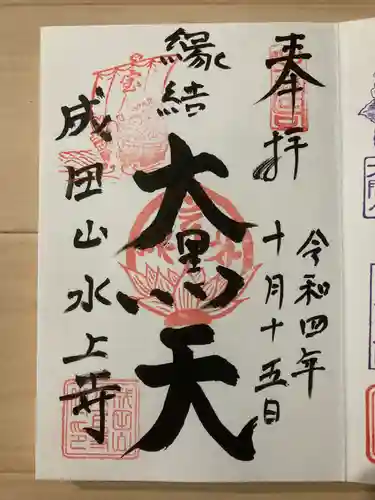 奉拝
令和四年
十月十五日
縁結
大黒天
成田山水上寺
宝